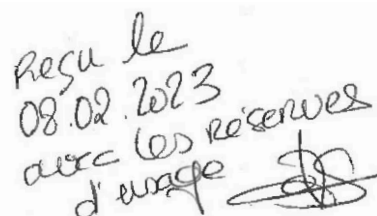 Reçu le
08.02.2023
avec les réserves
d'usage